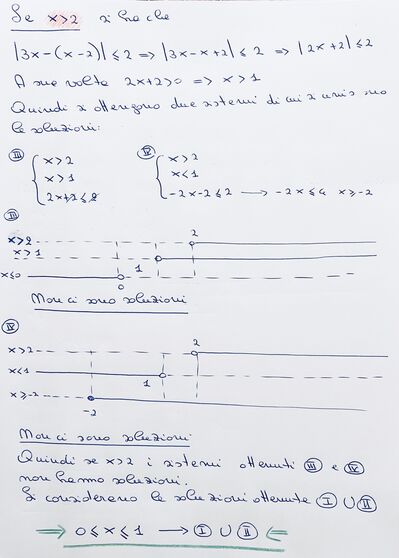 Se x>2 si ha che
|3x-(x-2)|≤2 => |3x-x+2|≤2 => |2x+2|≤2
A sue volte 2x+2>0 => x>1
Quindi si ottengono due sistemi di cui si unis
le soluzioni:
III { x>2 IV { x>2
x>1 x<1
2x+2≤2 -2x-2≤2 → -2x≤4 x≥-2
III
2
x>2
x>1
1
x≤0
0
Non ci sono soluzioni
IV
2
x>2
x<1
1
x≥-2
-2
Non ci sono soluzioni
Quindi se x>2 i sistemi ottenuti III e IV
non hanno soluzioni.
Si considerano le soluzioni ottenute I ∪ II
=> 0≤x≤1 → I ∪ II <=